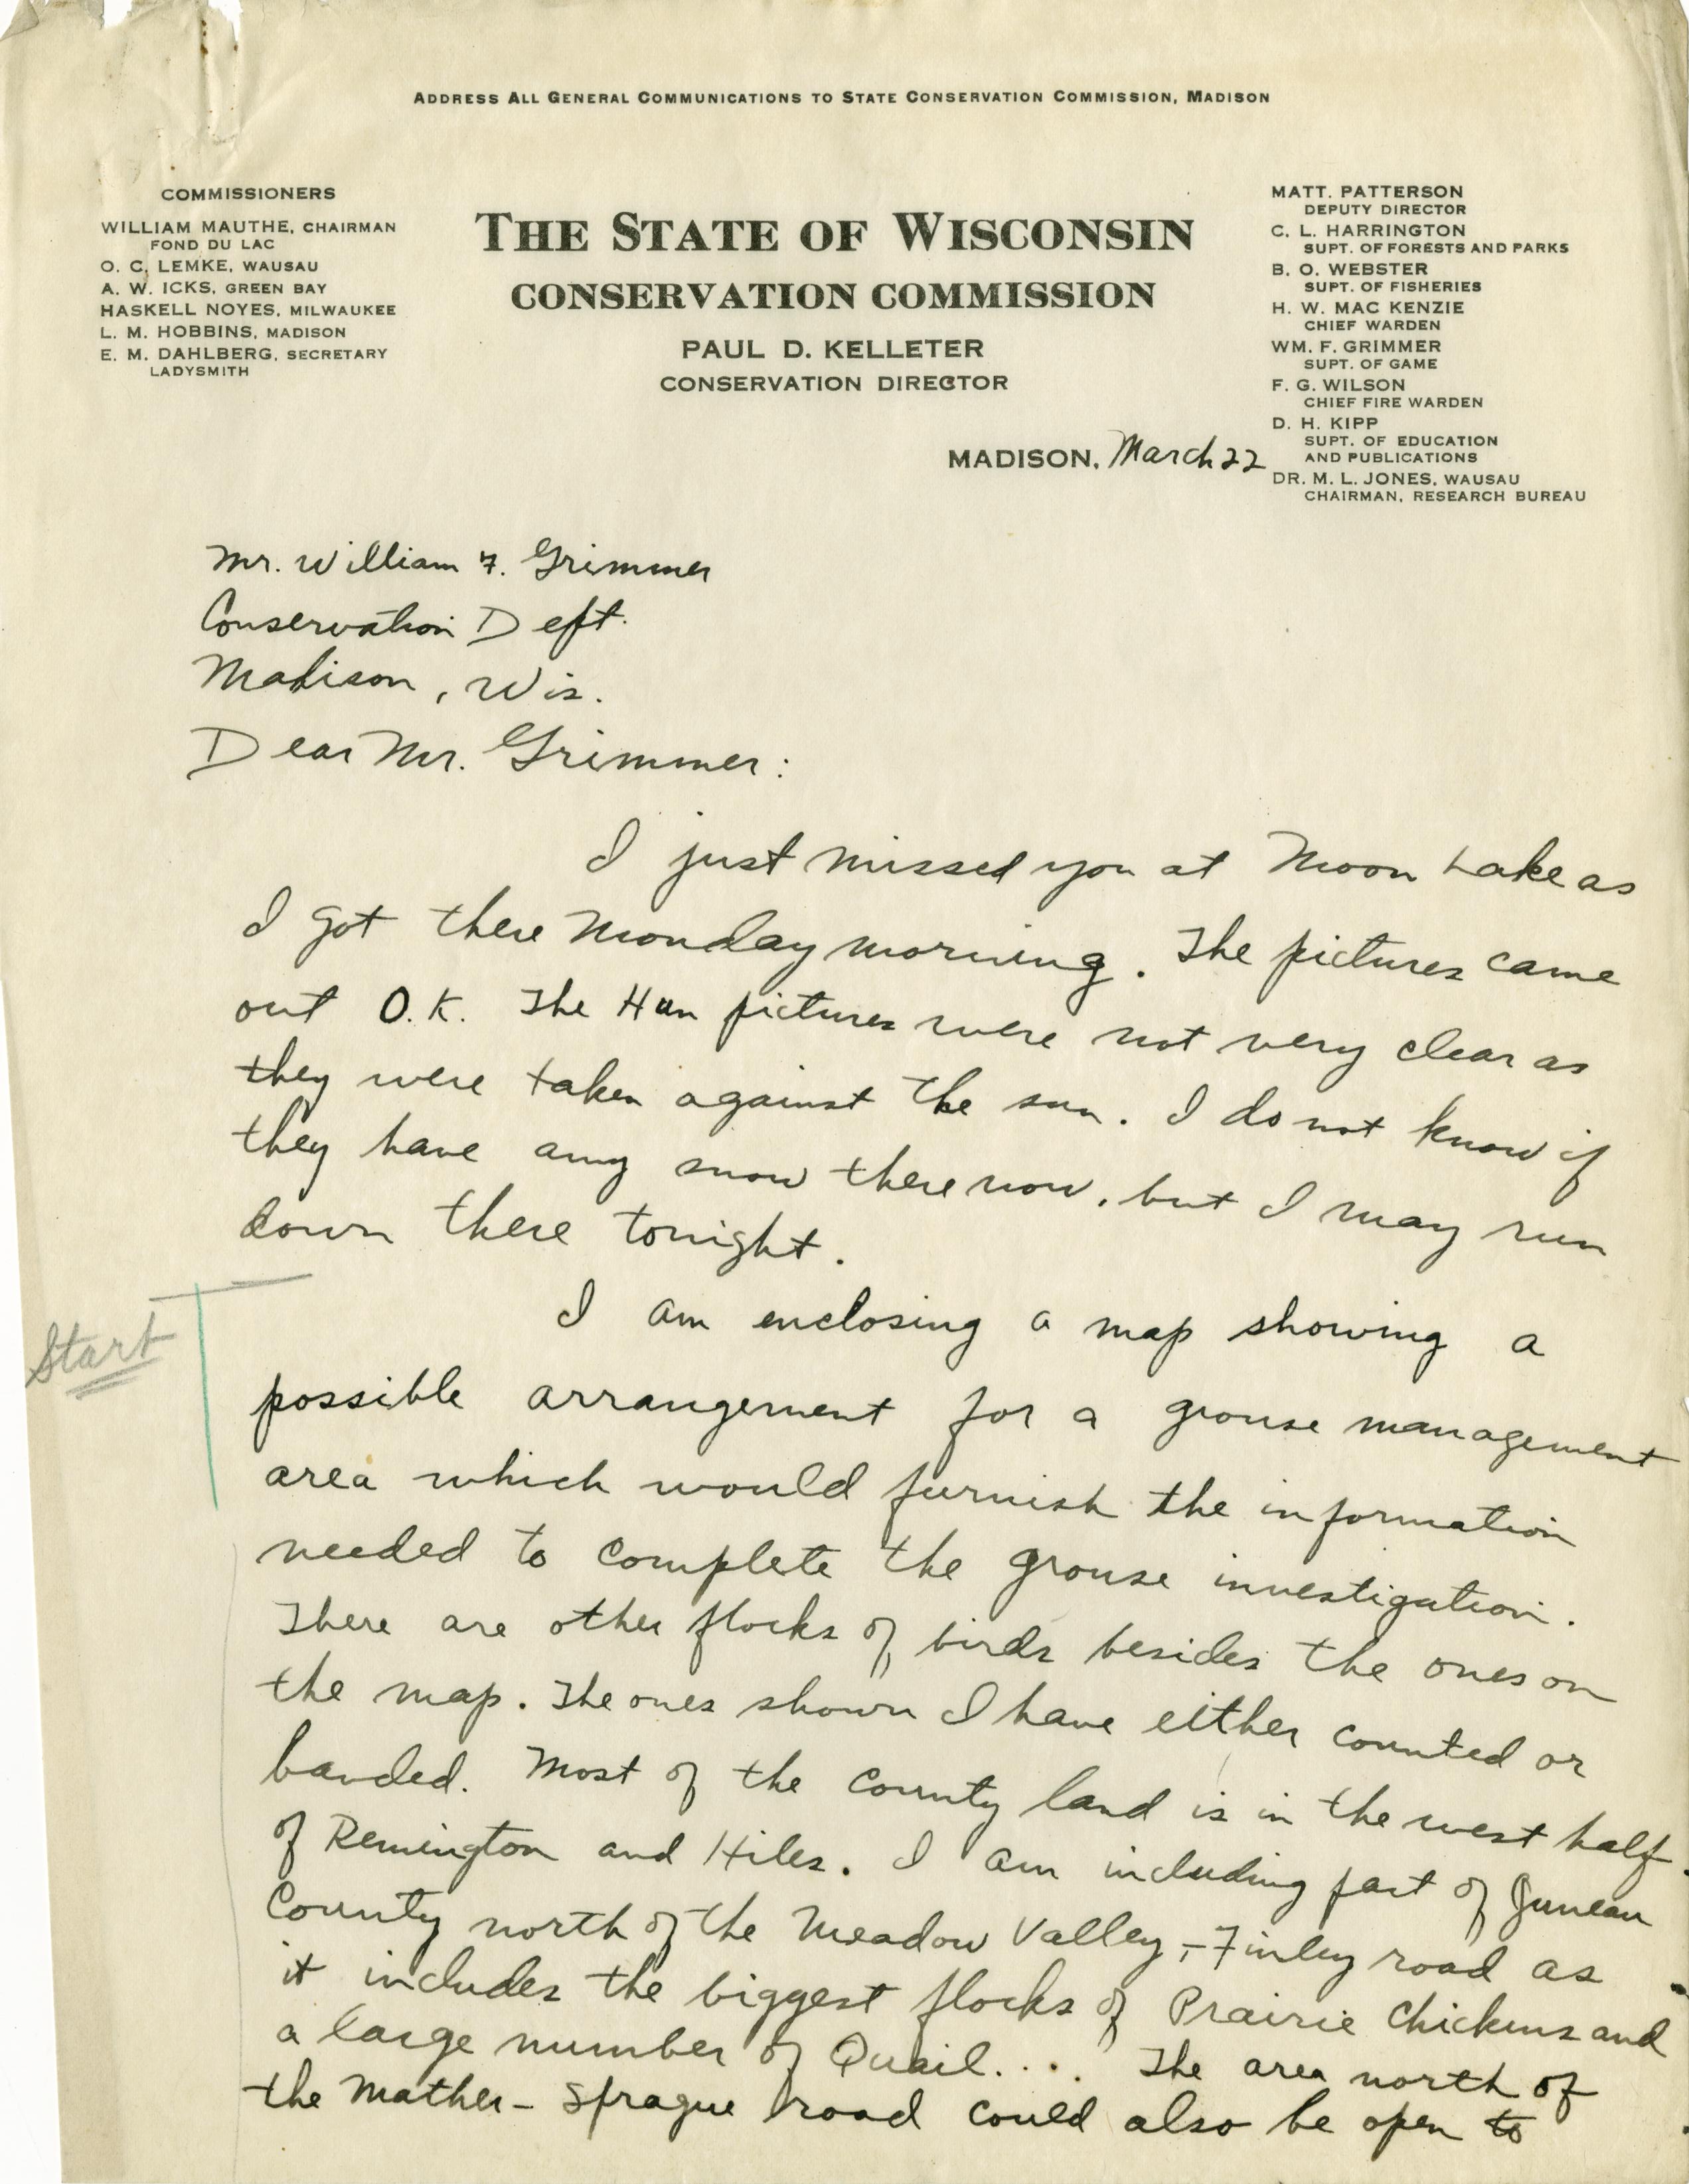 ADDRESS ALL GENERAL COMMUNICATIONS TO STATE CONSERVATION COMMISSION, MADISON
COMMISSIONERS
WILLIAM MAUTHE, CHAIRMAN
FOND DU LAC
O. C. LEMKE, WAUSAU
A. W. ICKS, GREEN BAY
HASKELL NOYES, MILWAUKEE
L. M. HOBBINS, MADISON
E. M. DAHLBERG, SECRETARY
LADYSMITH
THE STATE OF WISCONSIN
CONSERVATION COMMISSION
PAUL D. KELLETER
CONSERVATION DIRECTOR
MATT. PATTERSON
DEPUTY DIRECTOR
C. L. HARRINGTON
SUPT. OF FORESTS AND PARKS
B. O. WEBSTER
SUPT. OF FISHERIES
H. W. MAC KENZIE
CHIEF WARDEN
WM. F. GRIMMER
SUPT. OF GAME
F. G. WILSON
CHIEF FIRE WARDEN
D. H. KIPP
SUPT. OF EDUCATION
AND PUBLICATIONS
DR. M. L. JONES, WAUSAU
CHAIRMAN, RESEARCH BUREAU
MADISON, March 22
Mr. William F. Grimmer
Conservation Dept.
Madison, Wis.
Dear Mr. Grimmer:
I just missed you at Moon Lake as
I got there Monday morning. The pictures came
out O.K. The Hun pictures were not very clear as
they were taken against the sun. I do not know if
they have any snow there now, but I may run
down there tonight.
Start
I am enclosing a map showing a
possible arrangement for a grouse management
area which would furnish the information
needed to complete the grouse investigation.
There are other flocks of birds besides the ones on
the map. The ones shown I have either counted or
banded. Most of the county land is in the west half
of Remington and Hiles. I am including part of Juneau
County north of the Meadow Valley,-Finley road as
it includes the biggest flocks of Prairie Chickens and
a large number of Quail.... The area north of
the Mather-Sprague road could also be open to